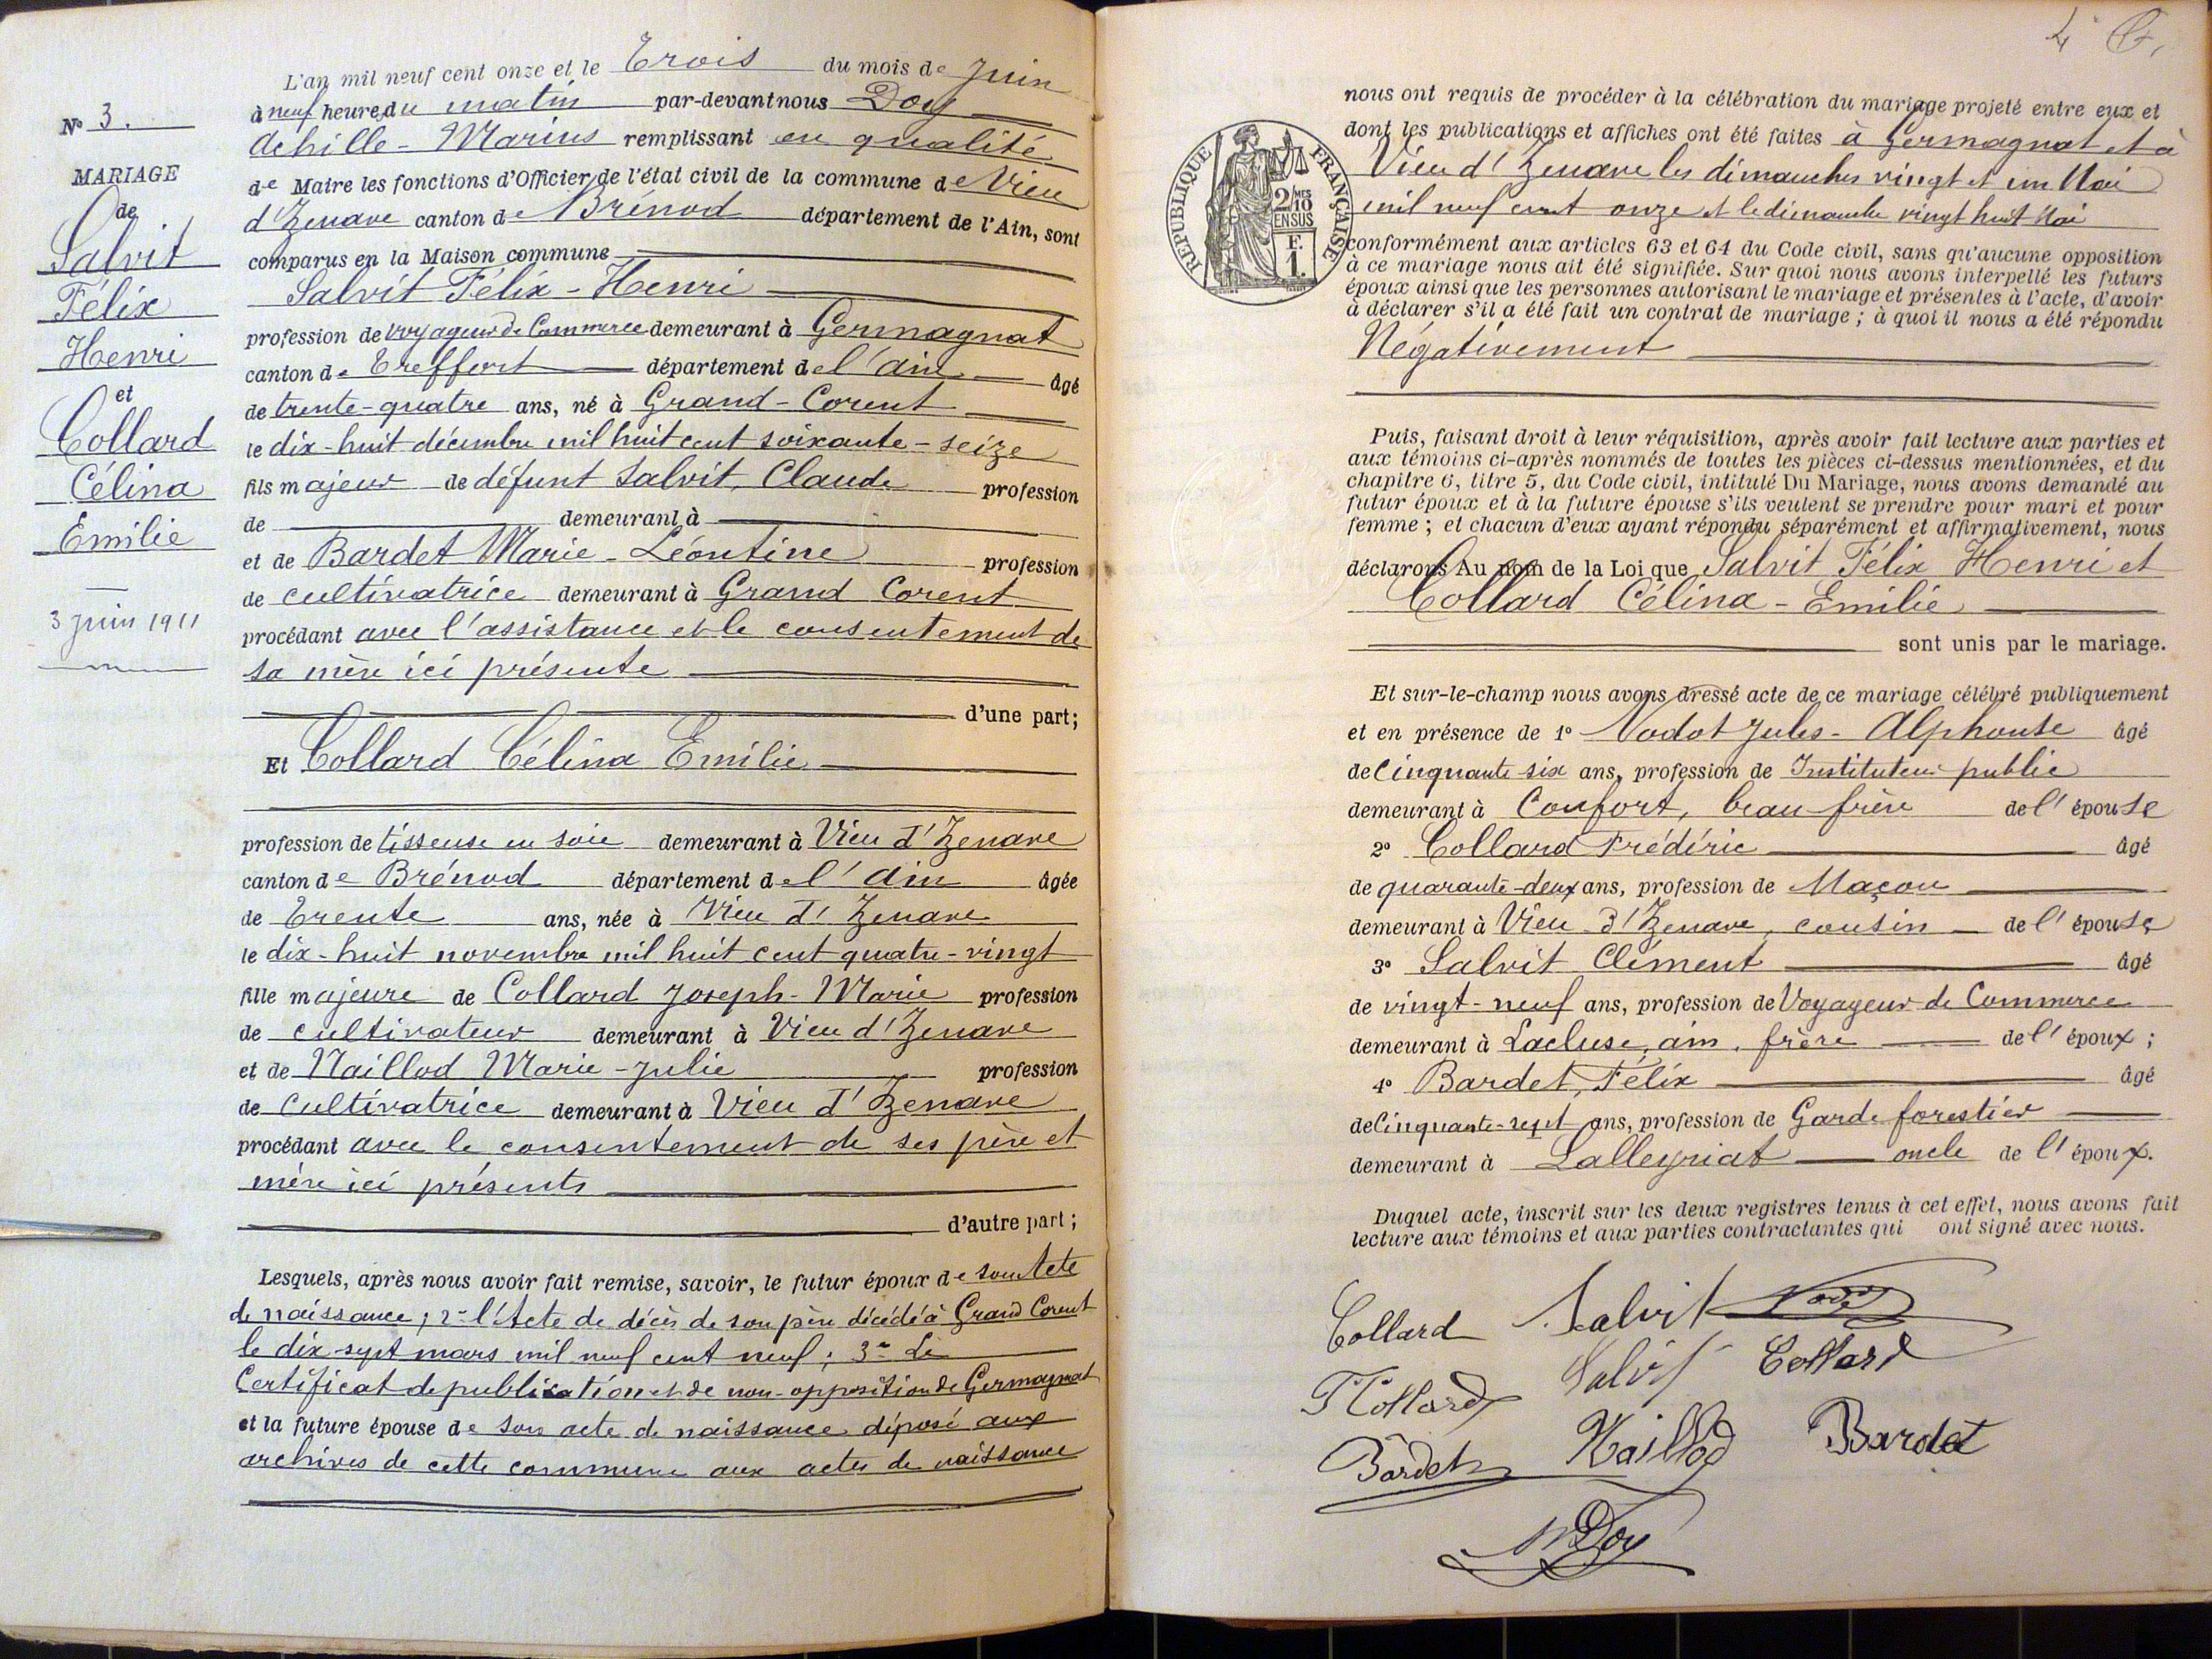 N° 3.
MARIAGE
de
Salvit
Félix
Henri
et
Collard
Célina
Emilie
3 juin 1911
L'an mil neuf cent onze et le Trois du mois de Juin
à neuf heures du matin par-devant nous Doy
Achille-Marius remplissant en qualité
de Maire les fonctions d'Officier de l'état civil de la commune de Vieu
d'Izenave canton de Brénod département de l'Ain, sont
comparus en la Maison commune
Salvit Félix-Henri
profession de voyageur de Commerce demeurant à Germagnat
canton de Treffort département de l'Ain âgé
de trente-quatre ans, né à Grand-Corent
le dix-huit décembre mil huit cent soixante-seize
fils majeur de défunt Salvit, Claude profession
de demeurant à
et de Bardet Marie-Léontine profession
de cultivatrice demeurant à Grand Corent
procédant avec l'assistance et le consentement de
sa mère ici présente
d'une part;
Et Collard Célina Emilie
profession de tisseuse en soie demeurant à Vieu d'Izenave
canton de Brénod département de l'Ain âgée
de Trente ans, née à Vieu d'Izenave
le dix-huit novembre mil huit cent quatre-vingt
fille majeure de Collard Joseph-Marie profession
de cultivateur demeurant à Vieu d'Izenave
et de Naillod Marie-Julie profession
de Cultivatrice demeurant à Vieu d'Izenave
procédant avec le consentement de ses père et
mère ici présents
d'autre part;
Lesquels, après nous avoir fait remise, savoir, le futur époux de son Acte
de naissance; 2° l'Acte de décès de son père décédé à Grand Corent
le dix-sept mars mil neuf cent neuf; 3° Le
Certificat de publication et de non-opposition de Germagnat
et la future épouse de son acte de naissance déposé aux
archives de cette commune aux actes de naissance
4
nous ont requis de procéder à la célébration du mariage projeté entre eux et
dont les publications et affiches ont été faites à Germagnat et à
Vieu d'Izenave les dimanches vingt et un Mai
mil neuf cent onze et le dimanche vingt huit Mai
RÉPUBLIQUE FRANÇAISE
2/10
EN SUS
F.
1.
conformément aux articles 63 et 64 du Code civil, sans qu'aucune opposition
à ce mariage nous ait été signifiée. Sur quoi nous avons interpellé les futurs
époux ainsi que les personnes autorisant le mariage et présentes à l'acte, d'avoir
à déclarer s'il a été fait un contrat de mariage; à quoi il nous a été répondu
Négativement
Puis, faisant droit à leur réquisition, après avoir fait lecture aux parties et
aux témoins ci-après nommés de toutes les pièces ci-dessus mentionnées, et du
chapitre 6, titre 5, du Code civil, intitulé Du Mariage, nous avons demandé au
futur époux et à la future épouse s'ils veulent se prendre pour mari et pour
femme; et chacun d'eux ayant répondu séparément et affirmativement, nous
déclarons Au nom de la Loi que Salvit Félix Henri et
Collard Célina-Emilie
sont unis par le mariage.
Et sur-le-champ nous avons dressé acte de ce mariage célébré publiquement
et en présence de 1° Nodot Jules-Alphonse âgé
de Cinquante six ans, profession de Instituteur public
demeurant à Confort, beau-frère de l'épouse
2° Collard Frédéric âgé
de quarante-deux ans, profession de Maçon
demeurant à Vieu d'Izenave, cousin de l'épouse
3° Salvit Clément âgé
de vingt-neuf ans, profession de Voyageur de Commerce
demeurant à Lacluse, ain, frère de l'époux;
4° Bardet, Félix âgé
de Cinquante-sept ans, profession de Garde forestier
demeurant à Lalleyriat oncle de l'époux.
Duquel acte, inscrit sur les deux registres tenus à cet effet, nous avons fait
lecture aux témoins et aux parties contractantes qui ont signé avec nous.
Collard Salvit Nodot
F Collard Salvit Collard
Bardet Naillod Bardet
Doy